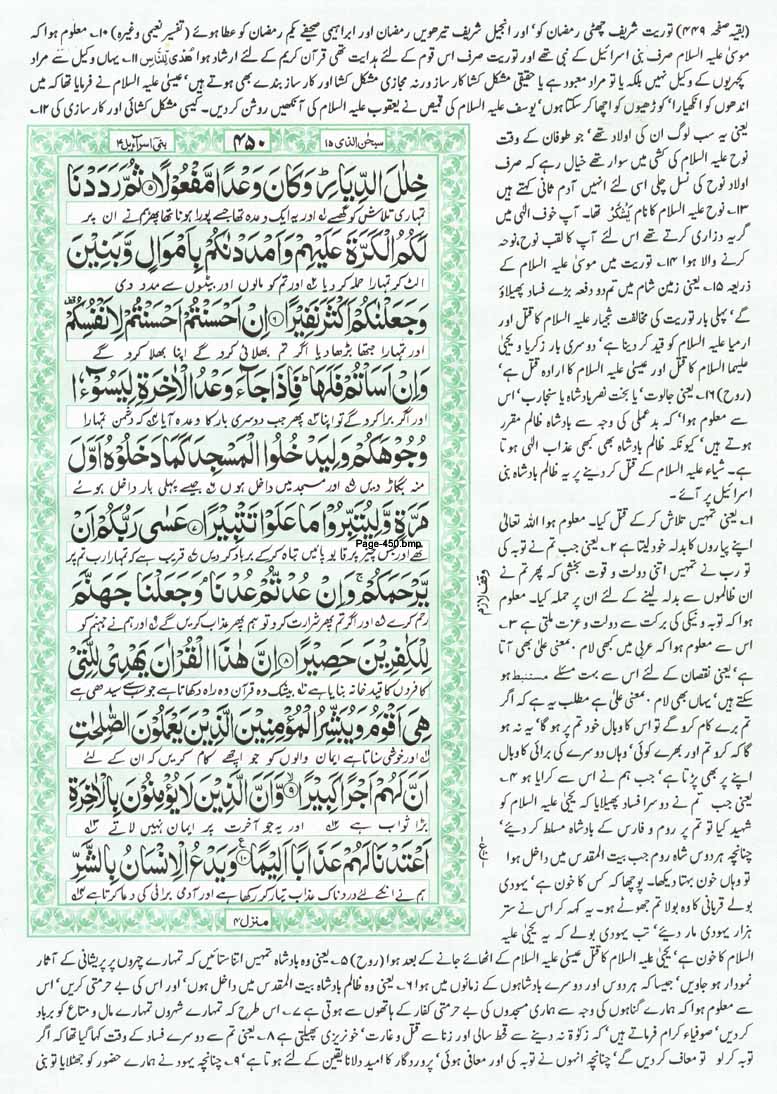 (بقیہ صفحہ ۴۴۹) توریت شریف چھٹی رمضان کو' اور انجیل شریف تیرھویں رمضان اور ابراہیمی صحیفے یکم رمضان کو عطا ہوئے (تفسیر نعیمی وغیرہ) ۱۰۔ معلوم ہوا کہ
موسیٰ علیہ السلام صرف بنی اسرائیل کے نبی تھے اور توریت صرف اس قوم کے لئے ہدایت تھی قرآن کریم کے لئے ارشاد ہوا ھُدًی لِّلنَّاسِ ۱۱۔ یہاں وکیل سے مراد
کچہریوں کے وکیل نہیں بلکہ یا تو مراد معبود ہے یا حقیقی مشکل کشا کارساز ورنہ مجازی مشکل کشا اور کارساز بندے بھی ہوتے ہیں' عیسیٰ علیہ السلام نے فرمایا تھا کہ میں
اندھوں کو انکھیارا' کوڑھیوں کو اچھا کر سکتا ہوں' یوسف علیہ السلام کی قمیص نے یعقوب علیہ السلام کی آنکھیں روشن کر دیں۔ کیسی مشکل کشائی اور کارسازی کی ۱۲۔
یعنی یہ سب لوگ ان کی اولاد تھے' جو طوفان کے وقت
نوح علیہ السلام کی کشتی میں سوار تھے خیال رہے کہ صرف
اولاد نوح کی نسل چلی اسی لئے انہیں آدم ثانی کہتے ہیں
۱۳۔ نوح علیہ السلام کا نام یَشْکُر تھا۔ آپ خوف الٰہی میں
گریہ وزاری کرتے تھے اس لئے آپ کا لقب نوح' نوحہ
کرنے والا ہوا ۱۴۔ توریت میں موسیٰ علیہ السلام کے
ذریعہ ۱۵۔ یعنی زمین شام میں تم دو دفعہ بڑے فساد پھیلاؤ
گے' پہلی بار توریت کی مخالفت شعیا علیہ السلام کا قتل اور
ارمیا علیہ السلام کو قید کر دینا ہے' دوسری بار زکریا و یحیٰی
علیہما السلام کا قتل اور عیسیٰ علیہ السلام کا ارادہ قتل ہے'
(روح) ۱۶۔ یعنی جالوت' یا بخت نصر بادشاہ یا سنجاریب' اس
سے معلوم ہوا' کہ بدعملی کی وجہ سے بادشاہ ظالم مقرر
ہوتے ہیں' کیونکہ ظالم بادشاہ بھی کبھی عذاب الٰہی ہوتا
ہے۔ شیاء علیہ السلام کے قتل کر دینے پر یہ ظالم بادشاہ بنی
اسرائیل پر آئے۔
سبحٰن الذی ۱۵
۴۵۰
بنی اسرآءیل ۱۷
خِلٰلَ الدِّیَارِ ؕ وَكَانَ وَعْدًا مَّفْعُوْلًا ۵ ثُمَّ رَدَدْنَا
تمہاری تلاش کو گھسے اور یہ ایک وعدہ تھا جسے پورا ہونا تھا پھر ہم نے ان پر
لَكُمُ الْكَرَّةَ عَلَیْهِمْ وَاَمْدَدْنٰكُمْ بِاَمْوَالٍ وَّبَنِیْنَ
الٹ کر تمہارا حملہ کر دیا اور تم کو مالوں اور بیٹوں سے مدد دی
وَجَعَلْنٰكُمْ اَكْثَرَ نَفِیْرًا ۶ اِنْ اَحْسَنْتُمْ اَحْسَنْتُمْ لِاَنْفُسِكُمْ
اور تمہارا جتھا بڑھا دیا اگر تم بھلائی کرو گے اپنا بھلا کرو گے
وَاِنْ اَسَاْتُمْ فَلَهَا ؕ فَاِذَا جَآءَ وَعْدُ الْاٰخِرَةِ لِیَسُوْٓءٗا
اور اگر برا کرو گے تو اپنا پھر جب دوسری بار کا وعدہ آیا کہ دشمن تمہارا
وُجُوْهَكُمْ وَلِیَدْخُلُوا الْمَسْجِدَ كَمَا دَخَلُوْهُ اَوَّلَ
منہ بگاڑ دیں اور مسجد میں داخل ہوں جیسے پہلی بار داخل ہوئے
مَرَّةٍ وَّلِیُتَبِّرُوْا مَا عَلَوْا تَتْبِیْرًا ۷ عَسٰی رَبُّكُمْ اَنْ
تھے اور جس چیز پر قابو پائیں تباہ کر کے برباد کر دیں قریب ہے کہ تمہارا رب تم پر
Page-450.bmp
یَّرْحَمَكُمْ ۚ وَاِنْ عُدْتُّمْ عُدْنَا ۘ وَجَعَلْنَا جَهَنَّمَ
رحم کرے اور اگر تم پھر شرارت کرو تو ہم پھر عذاب کریں گے اور ہم نے جہنم کو
لِلْكٰفِرِیْنَ حَصِیْرًا ۸ اِنَّ هٰذَا الْقُرْاٰنَ یَهْدِیْ لِلَّتِیْ
کافروں کا قید خانہ بنایا ہے بیشک یہ قرآن وہ راہ دکھاتا ہے جو سب سے سیدھی ہے
هِیَ اَقْوَمُ وَیُبَشِّرُ الْمُؤْمِنِیْنَ الَّذِیْنَ یَعْمَلُوْنَ الصّٰلِحٰتِ
اور خوشی سناتا ہے ایمان والوں کو جو اچھے کام کریں کہ ان کے لئے
اَنَّ لَهُمْ اَجْرًا كَبِیْرًا ۹ وَّاَنَّ الَّذِیْنَ لَا یُؤْمِنُوْنَ بِالْاٰخِرَةِ
بڑا ثواب ہے اور یہ جو آخرت پر ایمان نہیں لاتے
اَعْتَدْنَا لَهُمْ عَذَابًا اَلِیْمًا ۱۰ وَیَدْعُ الْاِنْسَانُ بِالشَّرِّ
ہم نے انکے لئے دردناک عذاب تیار کر رکھا ہے اور آدمی برائی کی دعا کرتا ہے
منزل ۴
وقف لازم
ع
۱۔ یعنی تمہیں تلاش کر کے قتل کیا۔ معلوم ہوا اللہ تعالیٰ
اپنے پیاروں کا بدلہ خود لیتا ہے ۲۔ یعنی جب تم نے توبہ کی
تو رب نے تمہیں اتنی دولت و قوت بخشی کہ پھر تم نے
ان ظالموں سے بدلہ لینے کے لئے ان پر حملہ کیا۔ معلوم
ہوا کہ توبہ و نیکی کی برکت سے دولت و عزت ملتی ہے ۳۔
اس سے معلوم ہوا کہ عربی میں کبھی لام بمعنی علیٰ بھی آتا
ہے' یعنی نقصان کے لئے اس سے بہت مسئلے مستنبط ہو
سکتے ہیں' یہاں بھی لام بمعنی علیٰ ہے مطلب یہ ہے کہ اگر
تم برے کام کرو گے تو اس کا وبال خود تم پر ہو گا' یہ نہ ہو
گا کہ کرو تم اور بھرے کوئی' وہاں دوسرے کی برائی کا وبال
اپنے پر بھی پڑتا ہے' جب ہم نے اس سے کرایا ہو ۴۔
یعنی جب تم نے دوسرا فساد پھیلایا کہ یحیٰی علیہ السلام کو
شہید کیا تو تم پر روم و فارس کے بادشاہ مسلط کر دیئے'
چنانچہ ہردوس شاہ روم جب بیت المقدس میں داخل ہوا
تو وہاں خون بہتا دیکھا۔ پوچھا کہ کس کا خون ہے' یہودی
بولے قربانی کا وہ بولا تم جھوٹے ہو۔ یہ کہہ کر اس نے ستر
ہزار یہودی مار دیئے' تب یہودی بولے کہ یہ یحیٰی علیہ
السلام کا خون ہے' یحیٰی علیہ السلام کا قتل عیسیٰ علیہ السلام کے اٹھائے جانے کے بعد ہوا (روح) ۵۔ یعنی وہ بادشاہ تمہیں اتنا ستائیں کہ تمہارے چہروں پر پریشانی کے آثار
نمودار ہو جاویں' جیسا کہ ہردوس اور دوسرے بادشاہوں کے زمانوں میں ہوا ۶۔ یعنی وہ ظالم بادشاہ بیت المقدس میں داخل ہوں' اور اس کی بے حرمتی کریں' اس
سے معلوم ہوا کہ ہمارے گناہوں کی وجہ سے ہماری مسجدوں کی بے حرمتی کفار کے ہاتھوں سے ہوتی ہے ۷۔ اس طرح کہ تمہارے شہروں تمہارے مال و متاع کو برباد
کر دیں' صوفیاء کرام فرماتے ہیں' کہ زکوٰۃ نہ دینے سے قحط سالی اور زنا سے قتل و غارت' خونریزی پھیلتی ہے ۸۔ یعنی تم سے دوسرے فساد کے وقت کہا گیا تھا کہ اگر
توبہ کر لو تو معاف کر دیں گے' چنانچہ انہوں نے توبہ کی اور معافی ہوئی' پروردگار کا امید دلانا یقین کے لئے ہوتا ہے' ۹۔ چنانچہ یہود نے ہمارے حضور کو جھٹلایا تو بنی